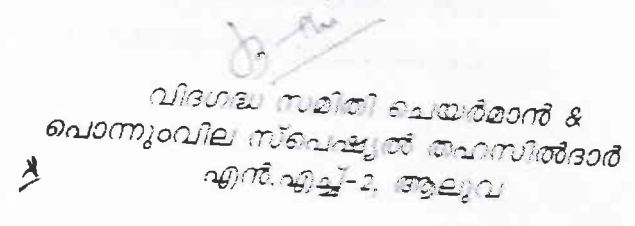 വിദഗ്ദ്ധ സമിതി ചെയർമാൻ &
പൊന്നുംവില സ്പെഷ്യൽ തഹസിൽദാർ
എൻ.എച്ച്-2, ആലുവ